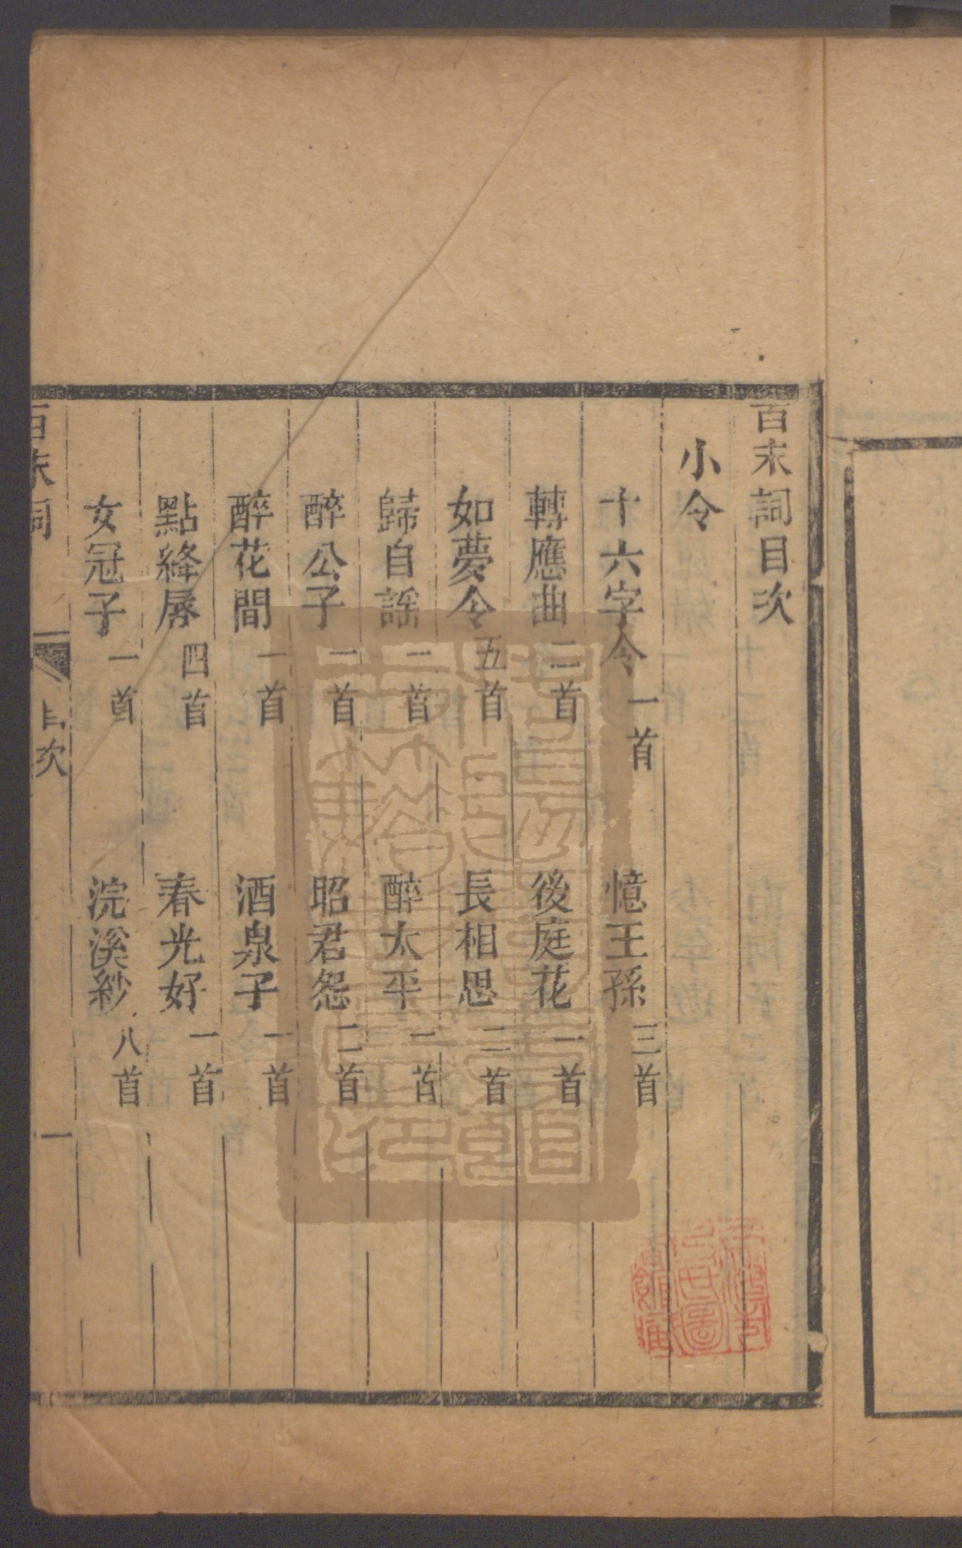 百末詞目次
小令
十六字令一首 憶王孫三首
轉應曲二首 後庭花一首
如夢令五首 長相思二首
歸自謡一首 醉太平一首
醉公子一首 昭君怨二首
醉花間一首 酒泉子一首
點絳脣四首 春光好一首
女冠子一首 浣溪紗八首
百末詞 目次 一